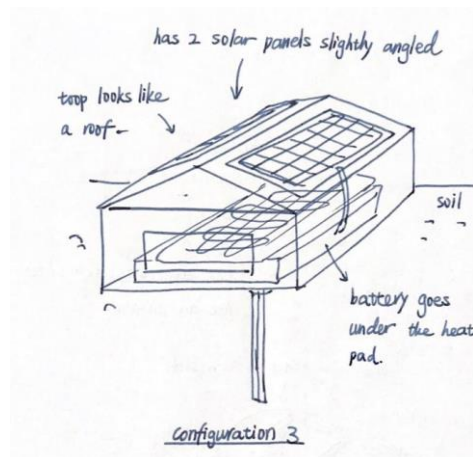 has 2 solar panels slightly angled
toop looks like
a roof.
soil
battery goes
under the heat
pad.
configuration 3